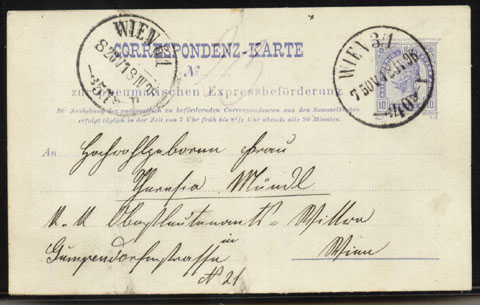 WIEN
CORRESPONDENZ-KARTE
№
WIEN 3/1
zur pneumatischen Expressbeförderung
10 10
Die Aushebung der pneumatisch zu befördernden Correspondenzen aus den Sammelkasten
erfolgt täglich in der Zeit von 7 Uhr früh bis 8½ Uhr abends alle 20 Minuten.
An Hochwohlgeboren Frau
Theresia Mündl
K. K. Oberstlieutenants-Witwe
in
Gumpendorferstrasse Wien
№ 21